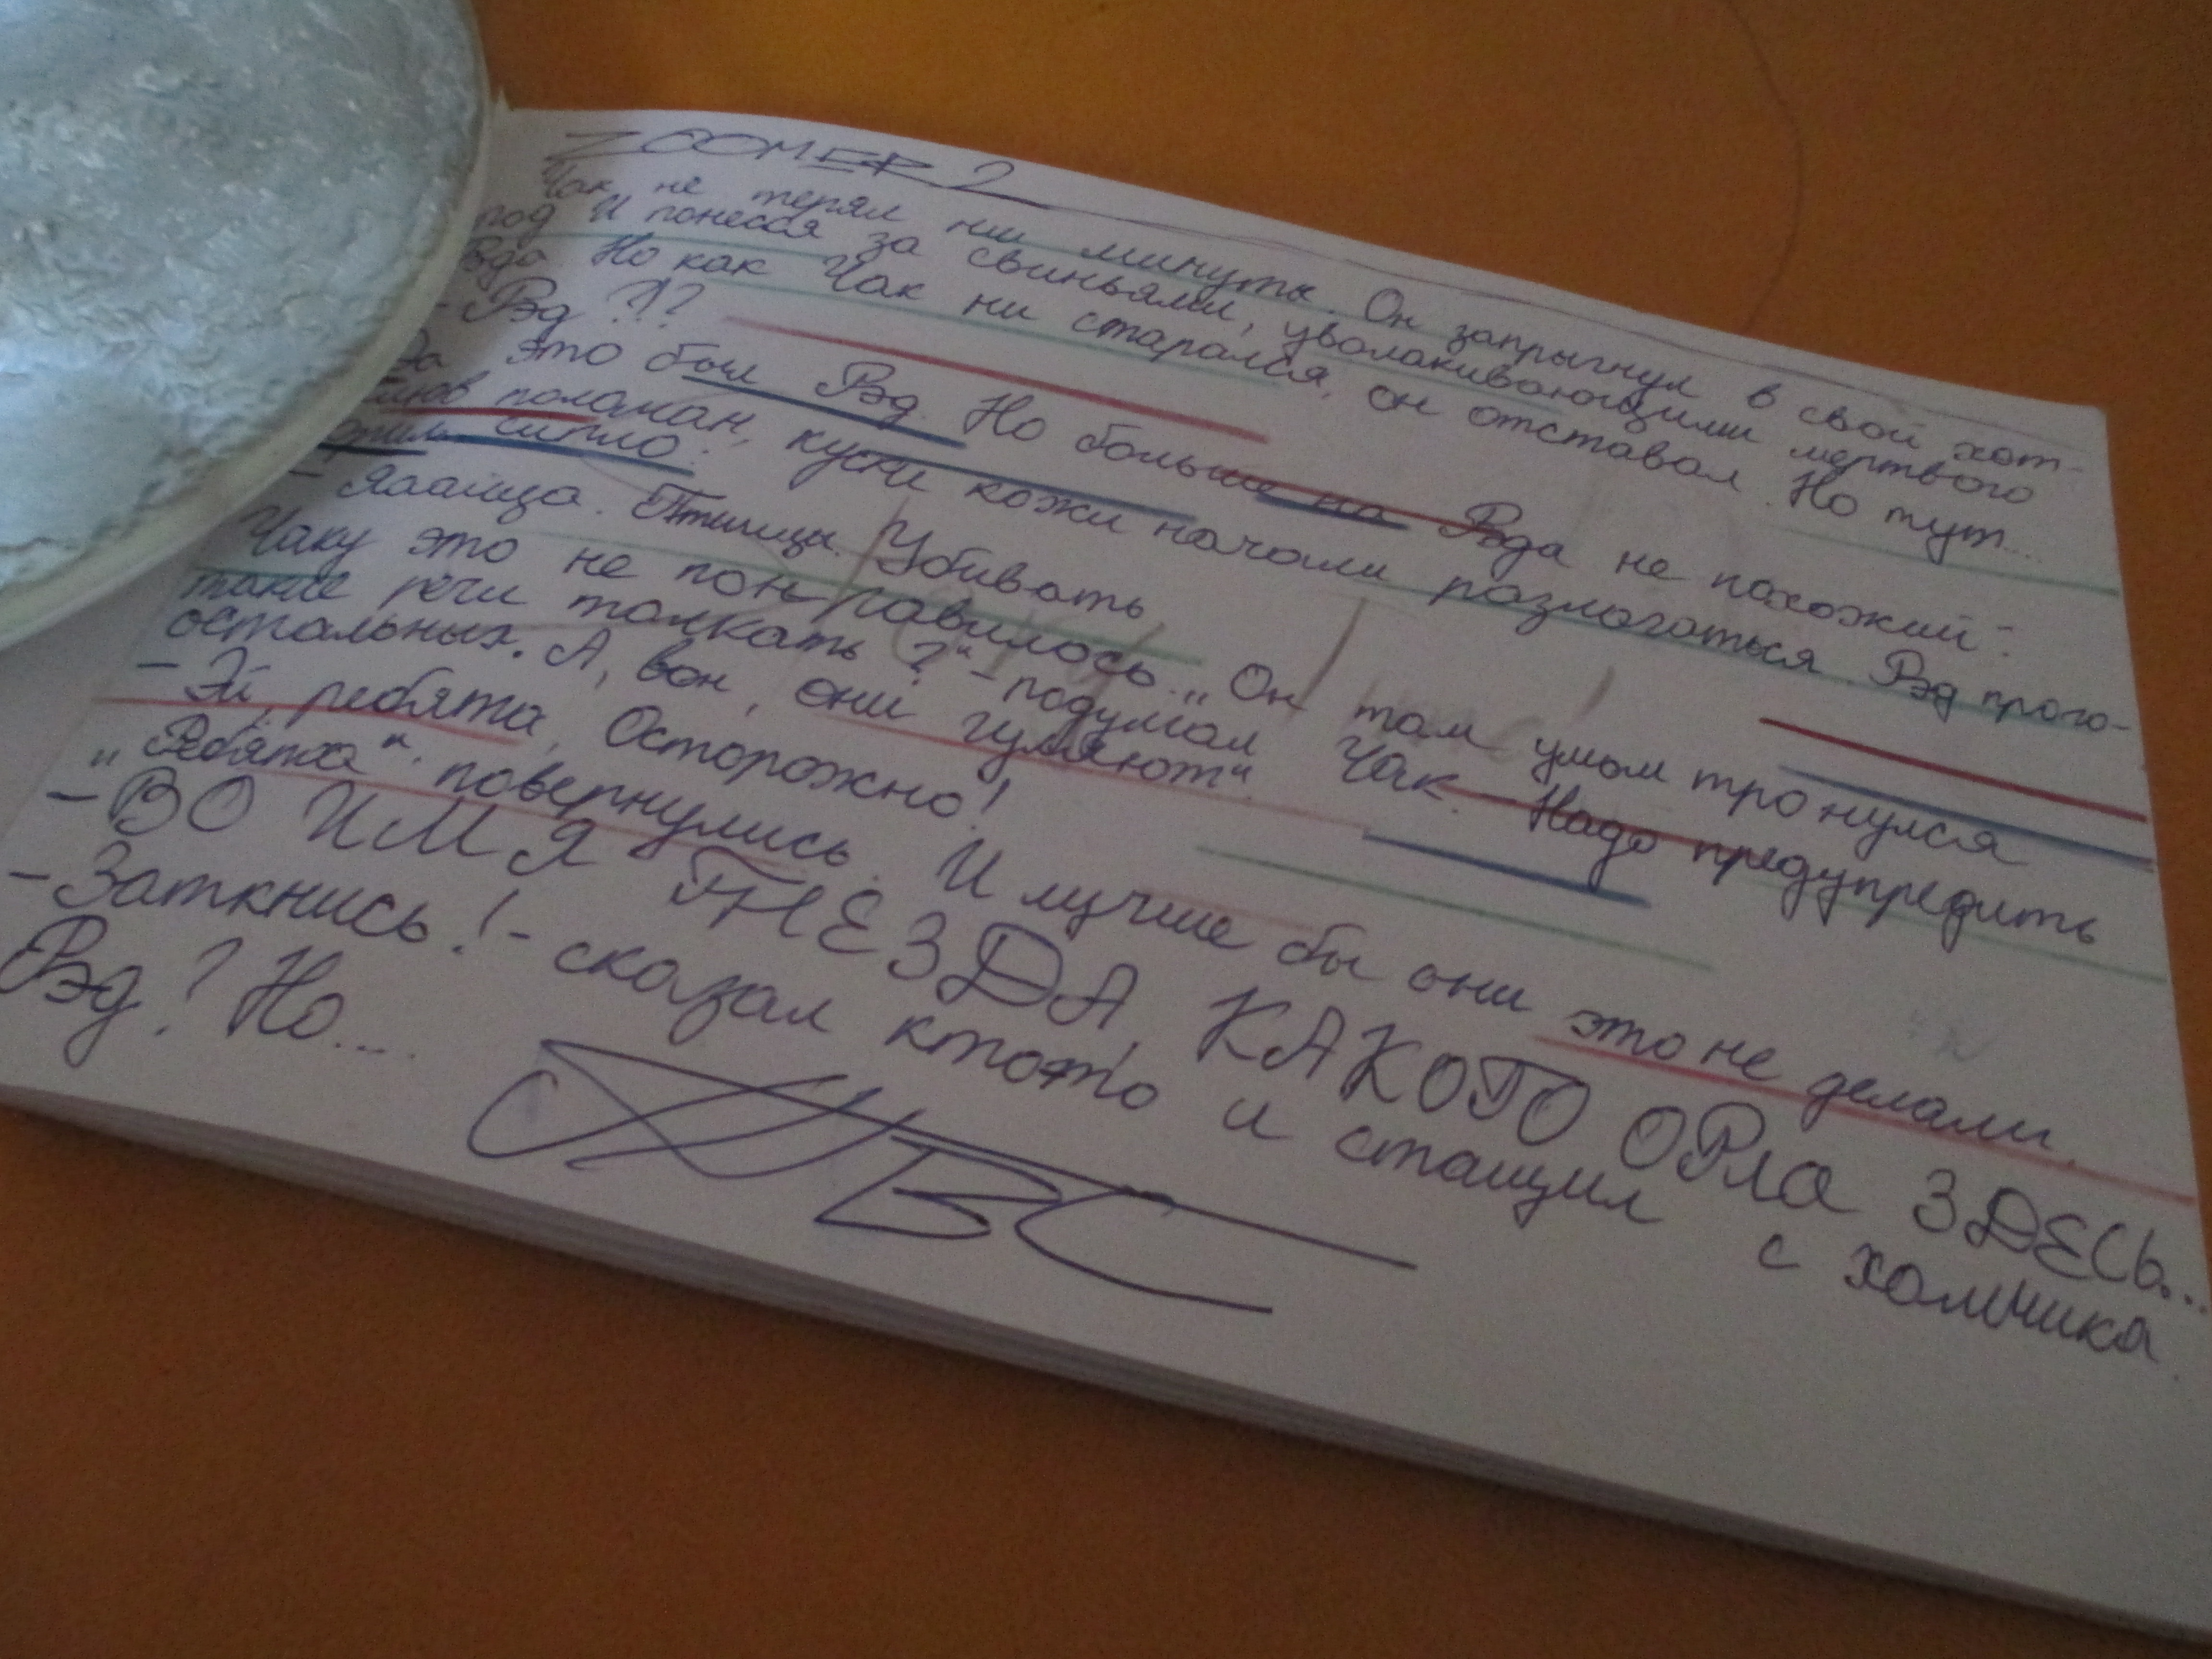 ZOOMER 2
Чак не терял ни минуты. Он запрыгнул в свой хот-
род и понёсся за свиньями, уволакивающими мертвого
Рэда Но как Чак ни старался, он отставал. Но тут...
- Рэд ?!?
Да это был Рэд. Но больше на Рэда не похожий:
клюв поломан, куски кожи начали разлагаться. Рэд прого-
ворил сипло:
- Яааайца. Птицы. Убивать
Чаку это не понравилось. „Он там умом тронулся
такие речи толкать ?“ - подумал Чак. - Надо предупредить
остальных. А, вон, они гуляют“.
- Эй, ребята, Осторожно!
„Ребята“ повернулись. И лучше бы они это не делали.
- ВО ИМЯ ГНЕЗДА, КАКОГО ОРЛА ЗДЕСЬ...
- Заткнись! - сказал кто-то и стащил с холмика
Рэд? Но...